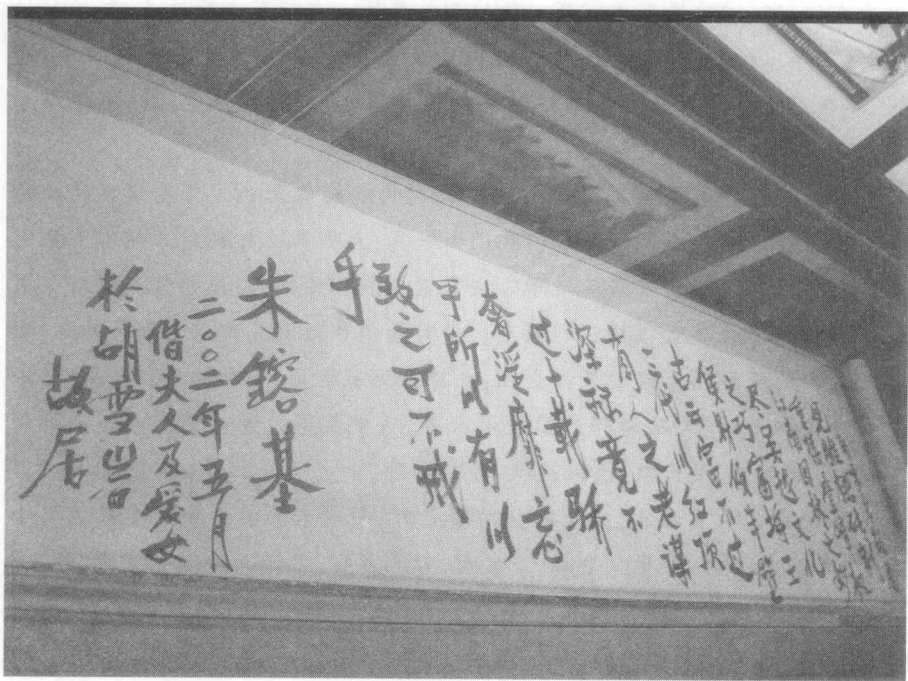 尽吴越文化
之巧富埒王
侯财倾半壁
古云富不过
三代以红顶
商人之老谋
深算竟不
过十载骄
奢淫靡忘
乎所以有以
致之可不戒
乎
朱鎔基
二〇〇二年五月
偕夫人及爱女
於胡雪岩
故居